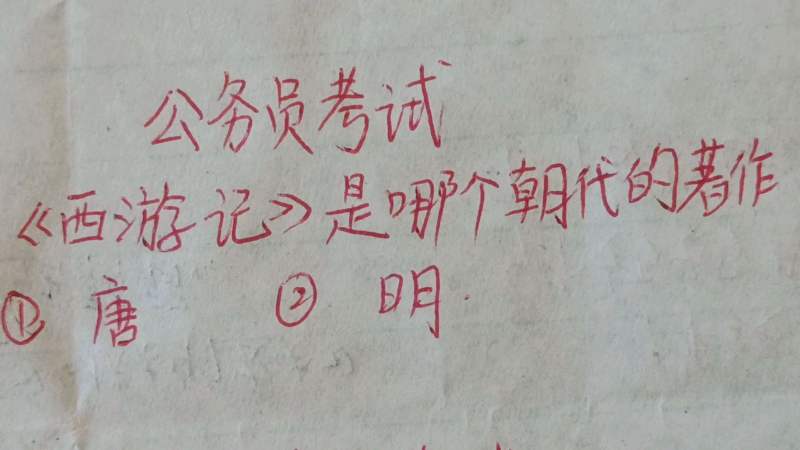 公务员考试
《西游记》是哪个朝代的著作
① 唐 ② 明